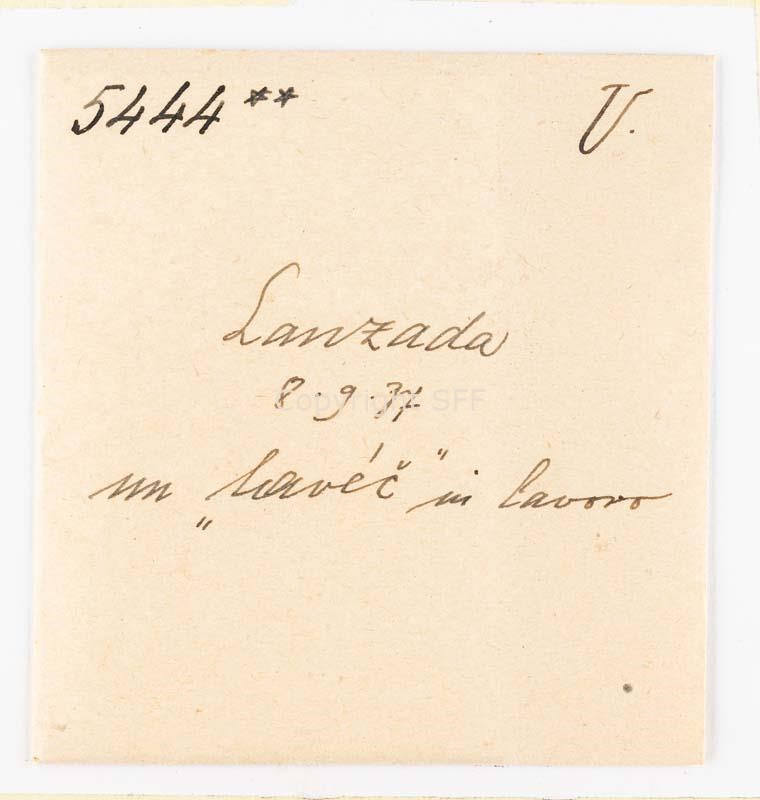 5444** V.
Lanzada
8.9.37
Copyright SFF
un „lavéč" in lavoro